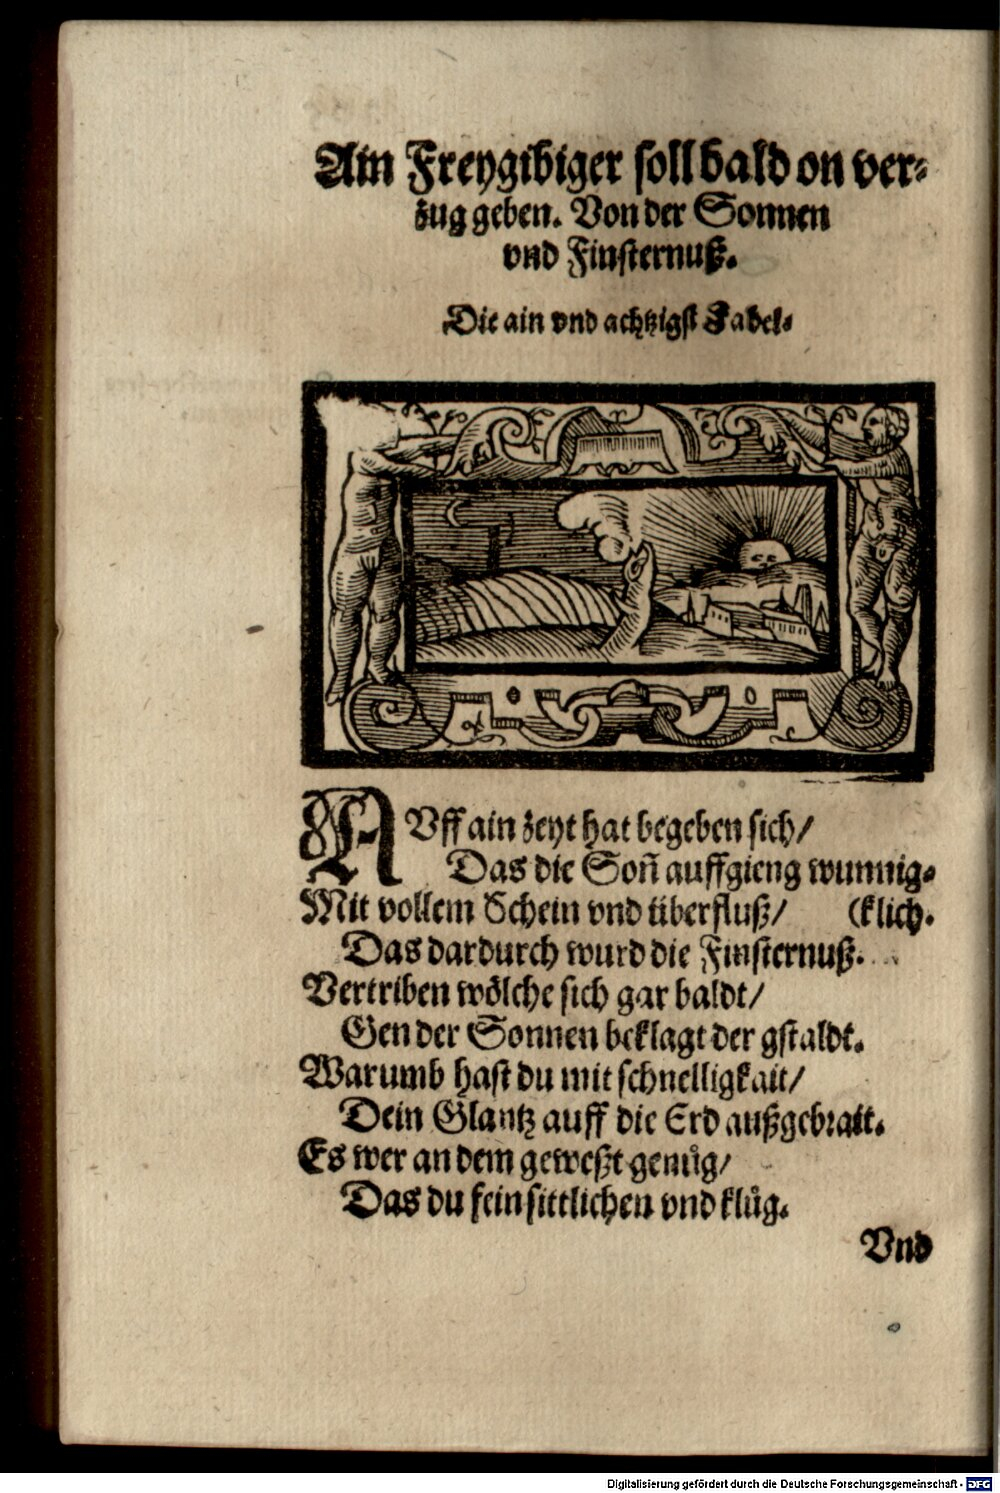 Ain Freygibiger soll bald on ver-
zug geben. Von der Sonnen
vnd Finsternuß.
Die ain vnd achtzigst Fabel.
AVff ain zeyt hat begeben sich/
Das die Soñ auffgieng wunnig-
Mit vollem Schein vnd überfluß/ (klich.
Das dardurch wurd die Finsternuß.
Vertriben wölche sich gar baldt/
Gen der Sonnen beklagt der gstaldt.
Warumb hast du mit schnelligkait/
Dein Glantz auff die Erd außgebrait.
Es wer an dem geweßt genůg/
Das du fein sittlichen vnd klůg.
Vnd
Digitalisierung gefördert durch die Deutsche Forschungsgemeinschaft - DFG